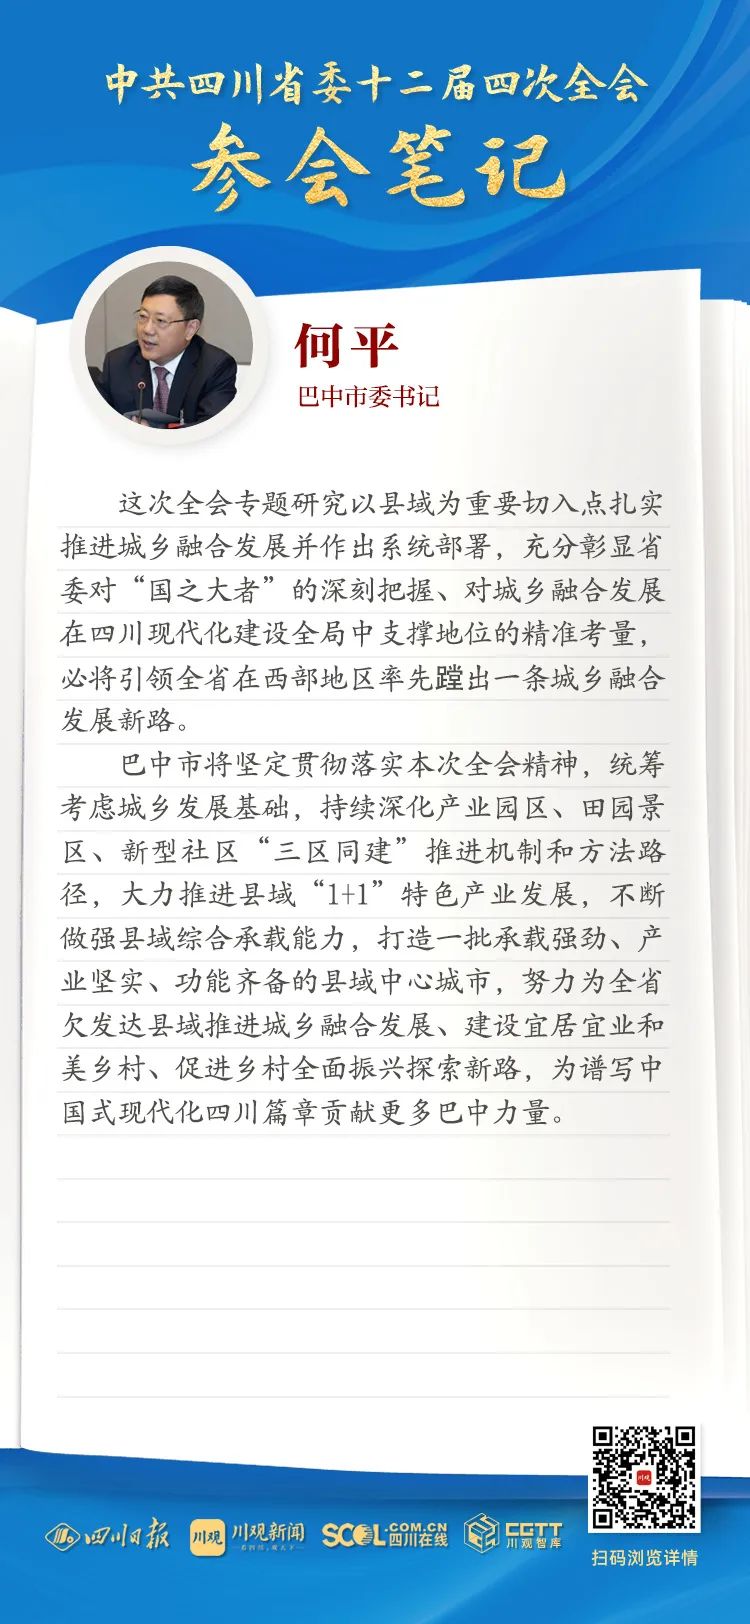 中共四川省委十二届四次全会
参会笔记
何平
巴中市委书记
这次全会专题研究以县域为重要切入点扎实
推进城乡融合发展并作出系统部署，充分彰显省
委对“国之大者”的深刻把握、对城乡融合发展
在四川现代化建设全局中支撑地位的精准考量，
必将引领全省在西部地区率先蹚出一条城乡融合
发展新路。
巴中市将坚定贯彻落实本次全会精神，统筹
考虑城乡发展基础，持续深化产业园区、田园景
区、新型社区“三区同建”推进机制和方法路
径，大力推进县域“1+1”特色产业发展，不断
做强县域综合承载能力，打造一批承载强劲、产
业坚实、功能齐备的县域中心城市，努力为全省
欠发达县域推进城乡融合发展、建设宜居宜业和
美乡村、促进乡村全面振兴探索新路，为谱写中
国式现代化四川篇章贡献更多巴中力量。
川观
四川日报
川观 川观新闻
SCOL.COM.CN 四川在线
CGTT 川观智库
扫码浏览详情